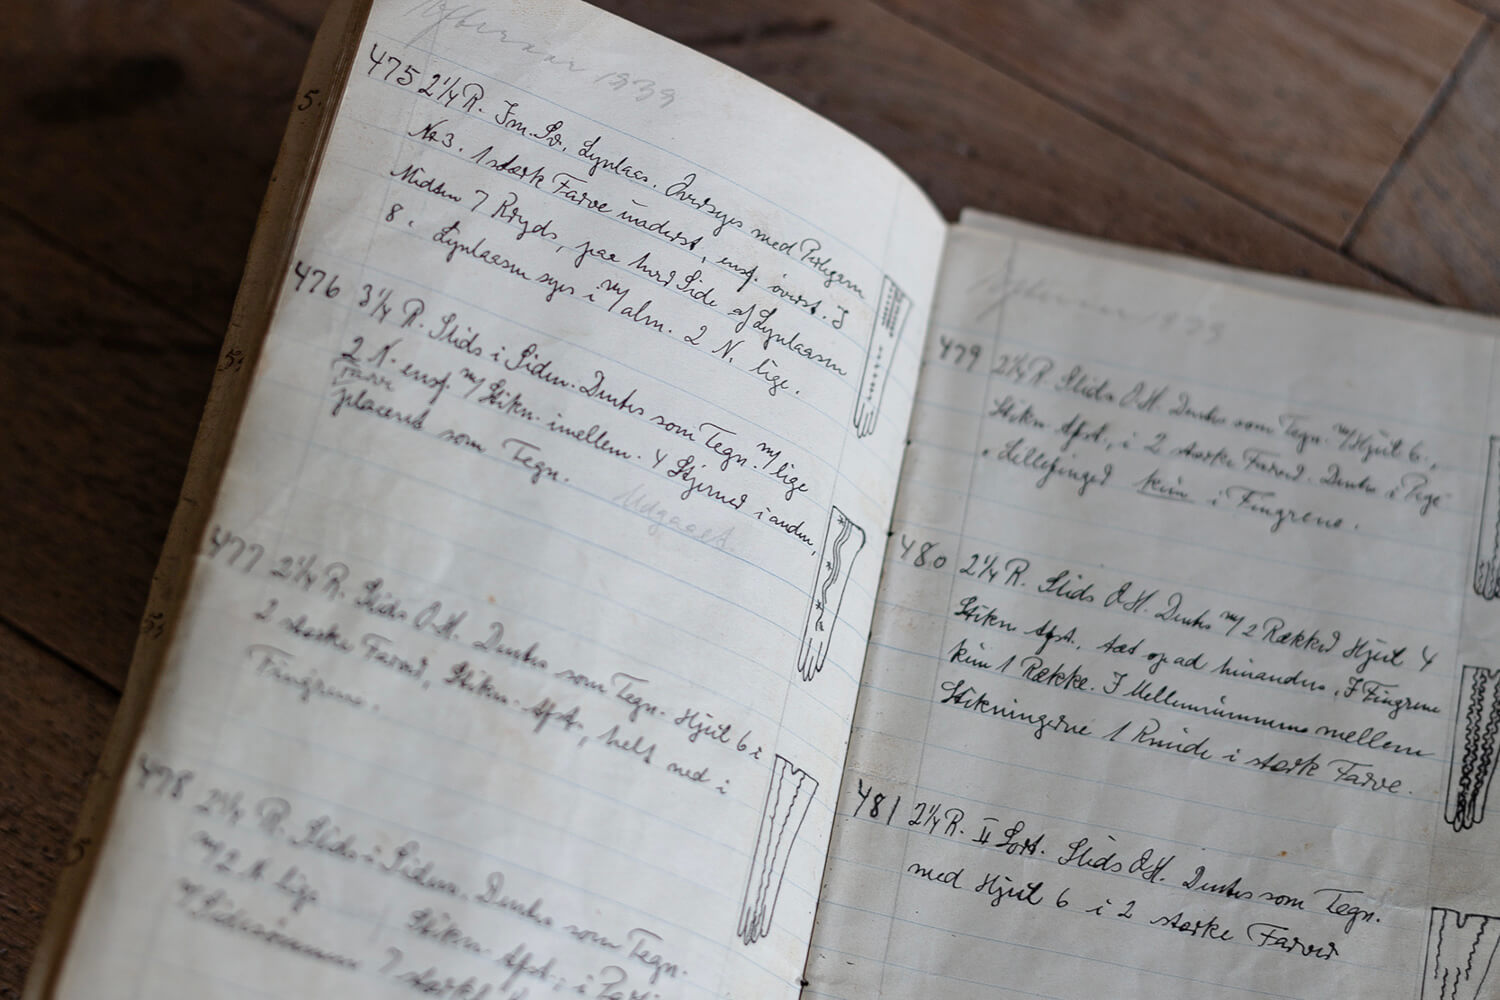 Februar 1939
475 2¼ R. Im. Sv. Lynlaas. Oversyes med Polygon
No 3. 1 stærk Farve inderst, ensf. øverst. I
Midten 7 Kryds, paa hver Side af Lynlaasen
8. Lynlaasen syes i m/ alm. 2 N. lige.
476 3¼ R. Slids i Siden. Dentes som Tegn. m/ lige
2 N. ensf. m/ Stikn. imellem. 4 Stjerner i anden
Farve
placeret som Tegn. Udgaaet.
477 2¼ R. Slids O.H. Dentes som Tegn. Hjul 6 i
2 stærke Farver, Stikn. Afst., helt ned i
Fingrene.
478 2¼ R. Slids i Siden. Dentes som Tegn.
m/ 2 N lige Stikn. Afst., i
Sidesømmen 7 stærke
Februar 1939
479 2¼ R. Slids O.H. Dentes som Tegn. m/ Hjul 6.,
Stikn. Afst., i 2 stærke Farver. Dentes i Pege
. Lillefinger kun i Fingrene.
480 2¼ R. Slids O.H. Dentes m/ 2 Rækker Hjul 4
Stikn. Afst., tæt op ad hinanden. I Fingrene
kun 1 Række. I Mellemrummene mellem
Stikningerne 1 Runde i stærk Farve.
481 2¼ R. II Sort. Slids O.H. Dentes som Tegn.
med Hjul 6 i 2 stærke Farver
5.
5.
5.
5